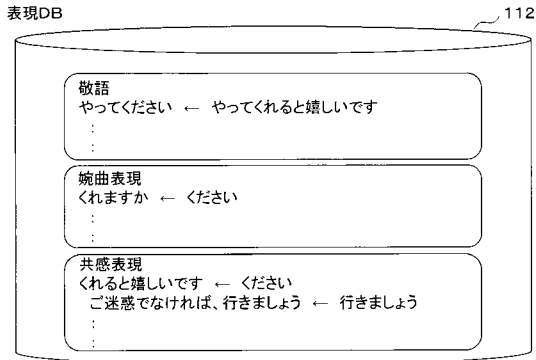 表現DB
112
敬語
やってください ← やってくれると嬉しいです
:
:
婉曲表現
くれますか ← ください
:
:
共感表現
くれると嬉しいです ← ください
ご迷惑でなければ、行きましょう ← 行きましょう
:
: